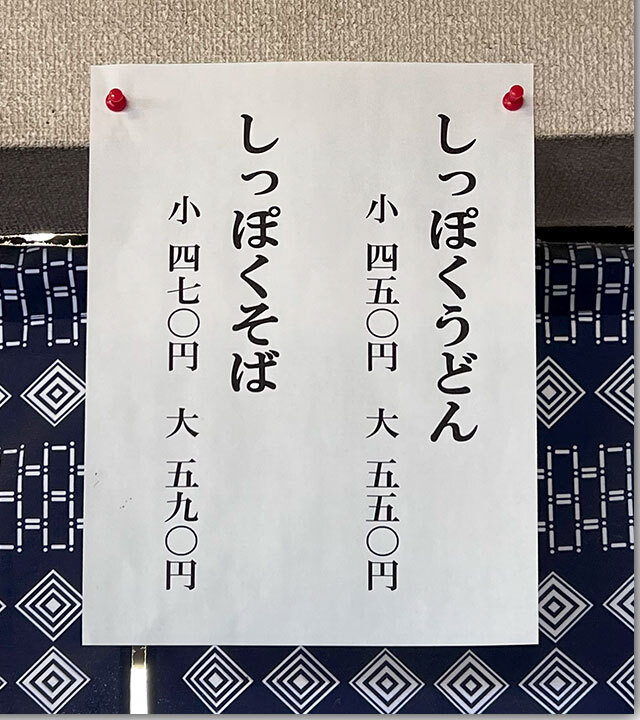 しっぽくうどん
小 四五〇円 大 五五〇円
しっぽくそば
小 四七〇円 大 五九〇円